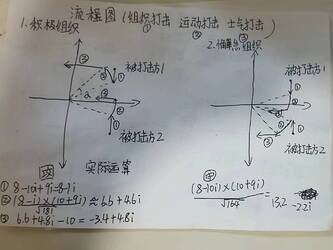 流程图(组织打击 运动打击 士气打击)
① ② ③
1.积极组织
2.懈焦组织
③
被打击方1
①
②
α
被打击方2
①
被打击方1
①
②
③
被打击方2
①
实际运算
① 8-10i+9i=8-1i
② (8-i)×(10+9i)/√181 ≈ 6.6+4.6i
③ 6.6+4.8i-10=-3.4+4.8i
(8-10i)×(10+9i)/√164 =13.2
-2.2i